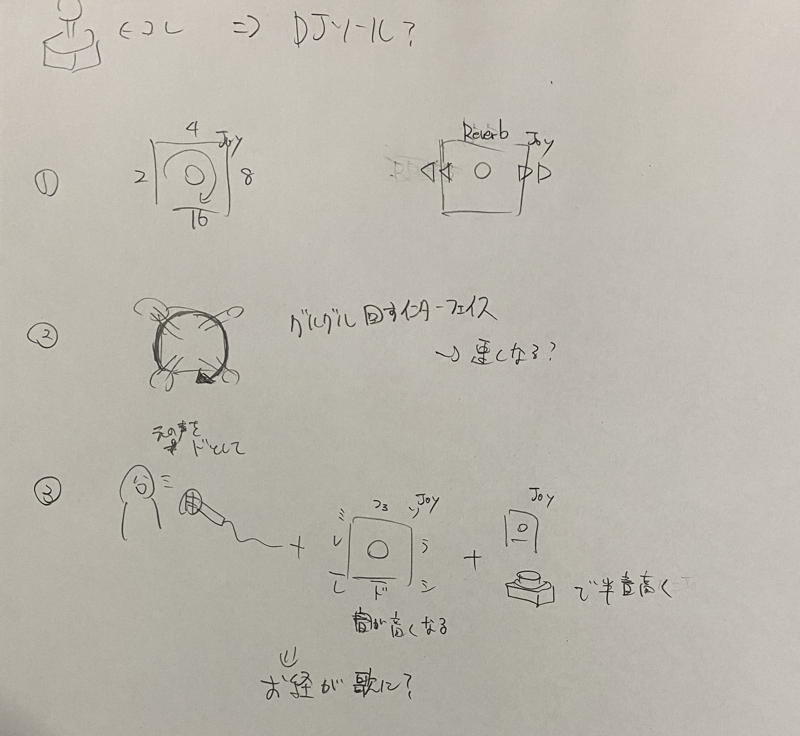 ⇒ DJツール?
①
4
Joy
2
8
16
Reverb
Joy
②
グルグル回すインターフェイス
→ 重くなる?
元の声を
ドとして
③
+
ミ ファ ソ Joy
レ ラ
ド シ
音が高くなる
+
Joy
で半音高く
お経が歌に?